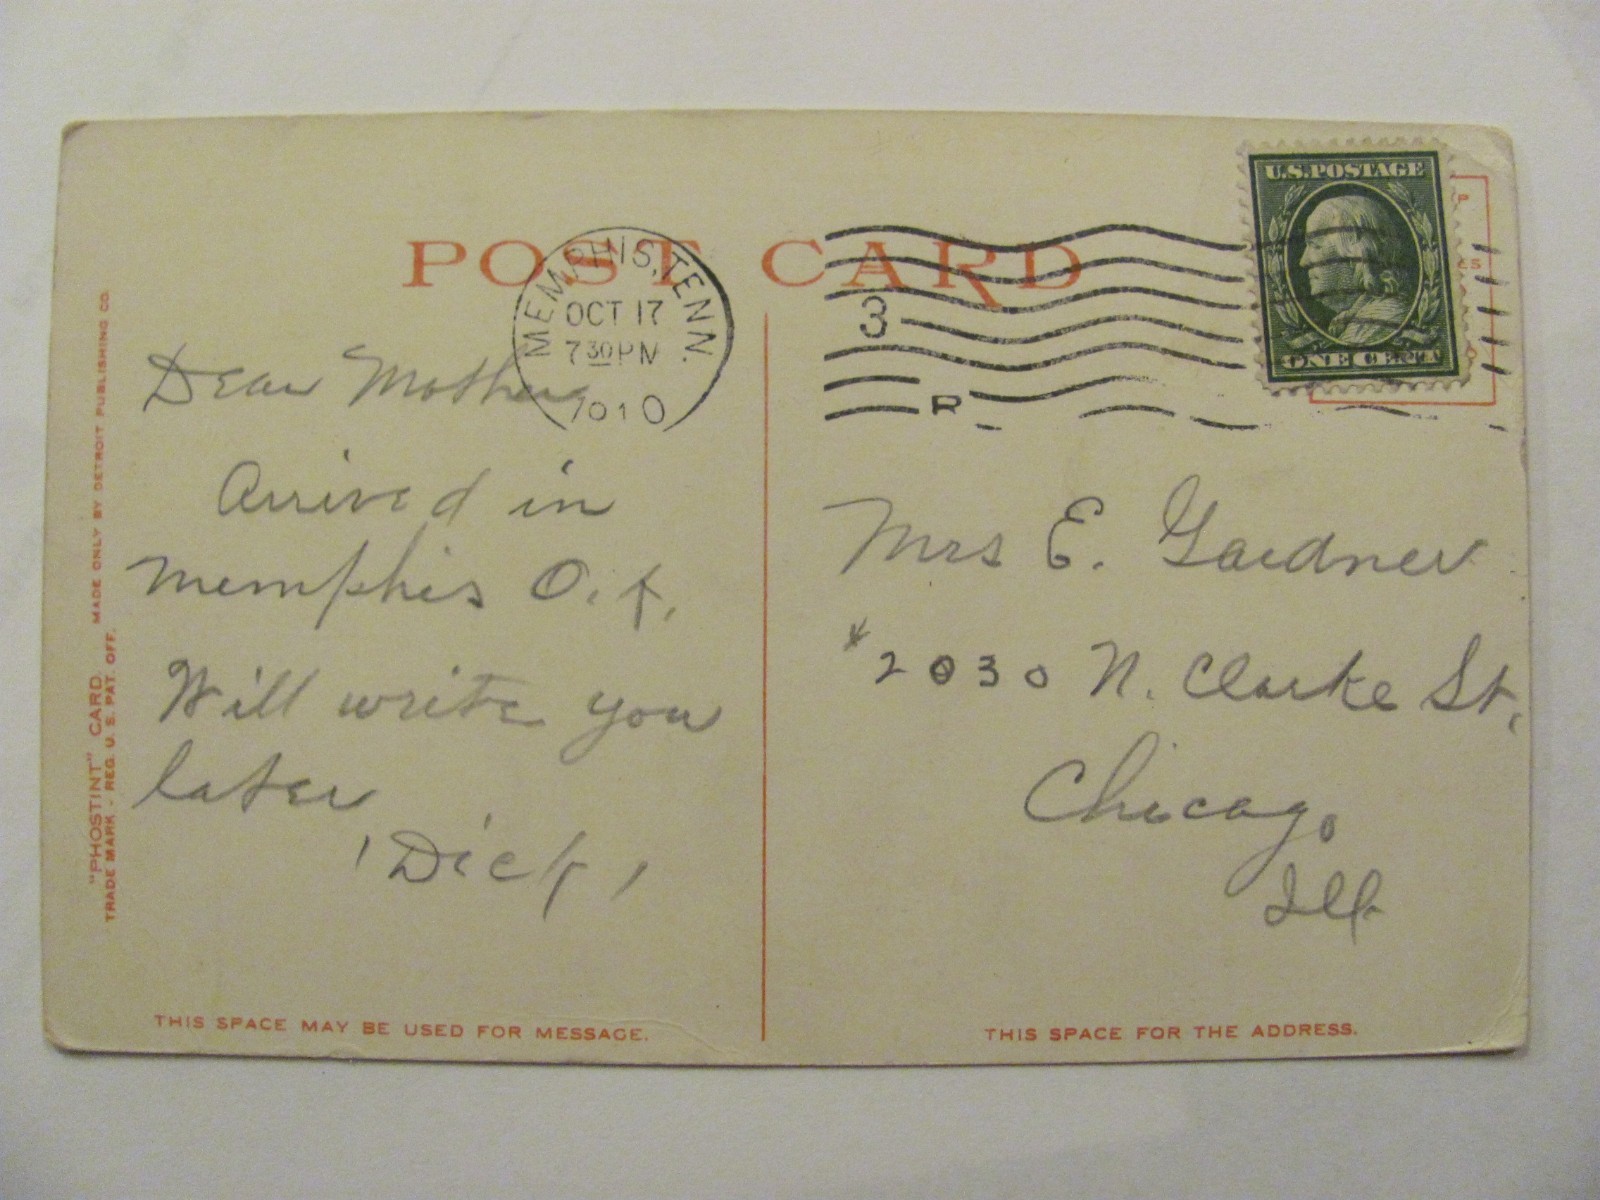 POST CARD
MEMPHIS, TENN.
OCT 17
7 30 PM
1910
3
R
U.S. POSTAGE
ONE CENT
Dear Mother
Arrived in
Memphis O.K.
Will write you
later
'Dick'
Mrs E. Gardner
#2030 N. Clarke St.
Chicago
Ill
"PHOSTINT" CARD. MADE ONLY BY DETROIT PUBLISHING CO.
TRADE MARK - REG. U. S. PAT. OFF.
THIS SPACE MAY BE USED FOR MESSAGE.
THIS SPACE FOR THE ADDRESS.